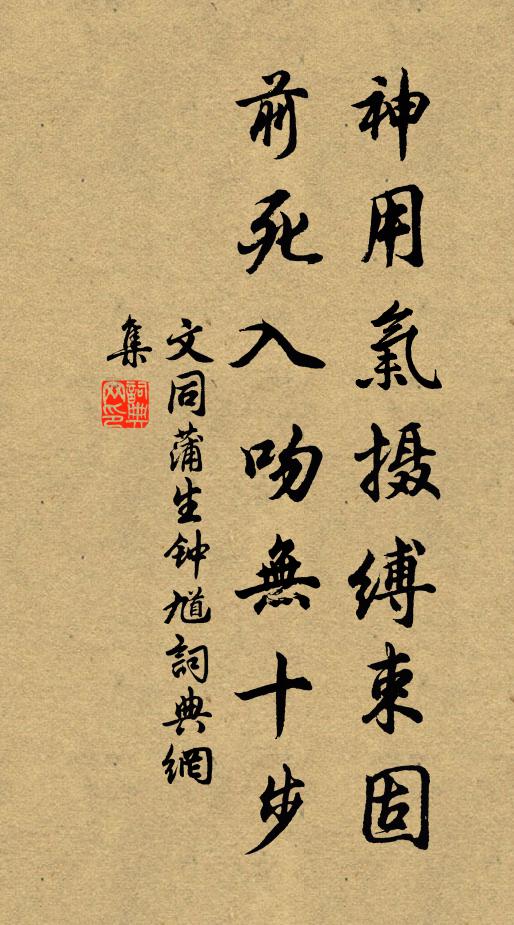 神用氣摄缚束固
前死入吻無十步
文同蒲生钟馗詞典網
集
詞典
网印